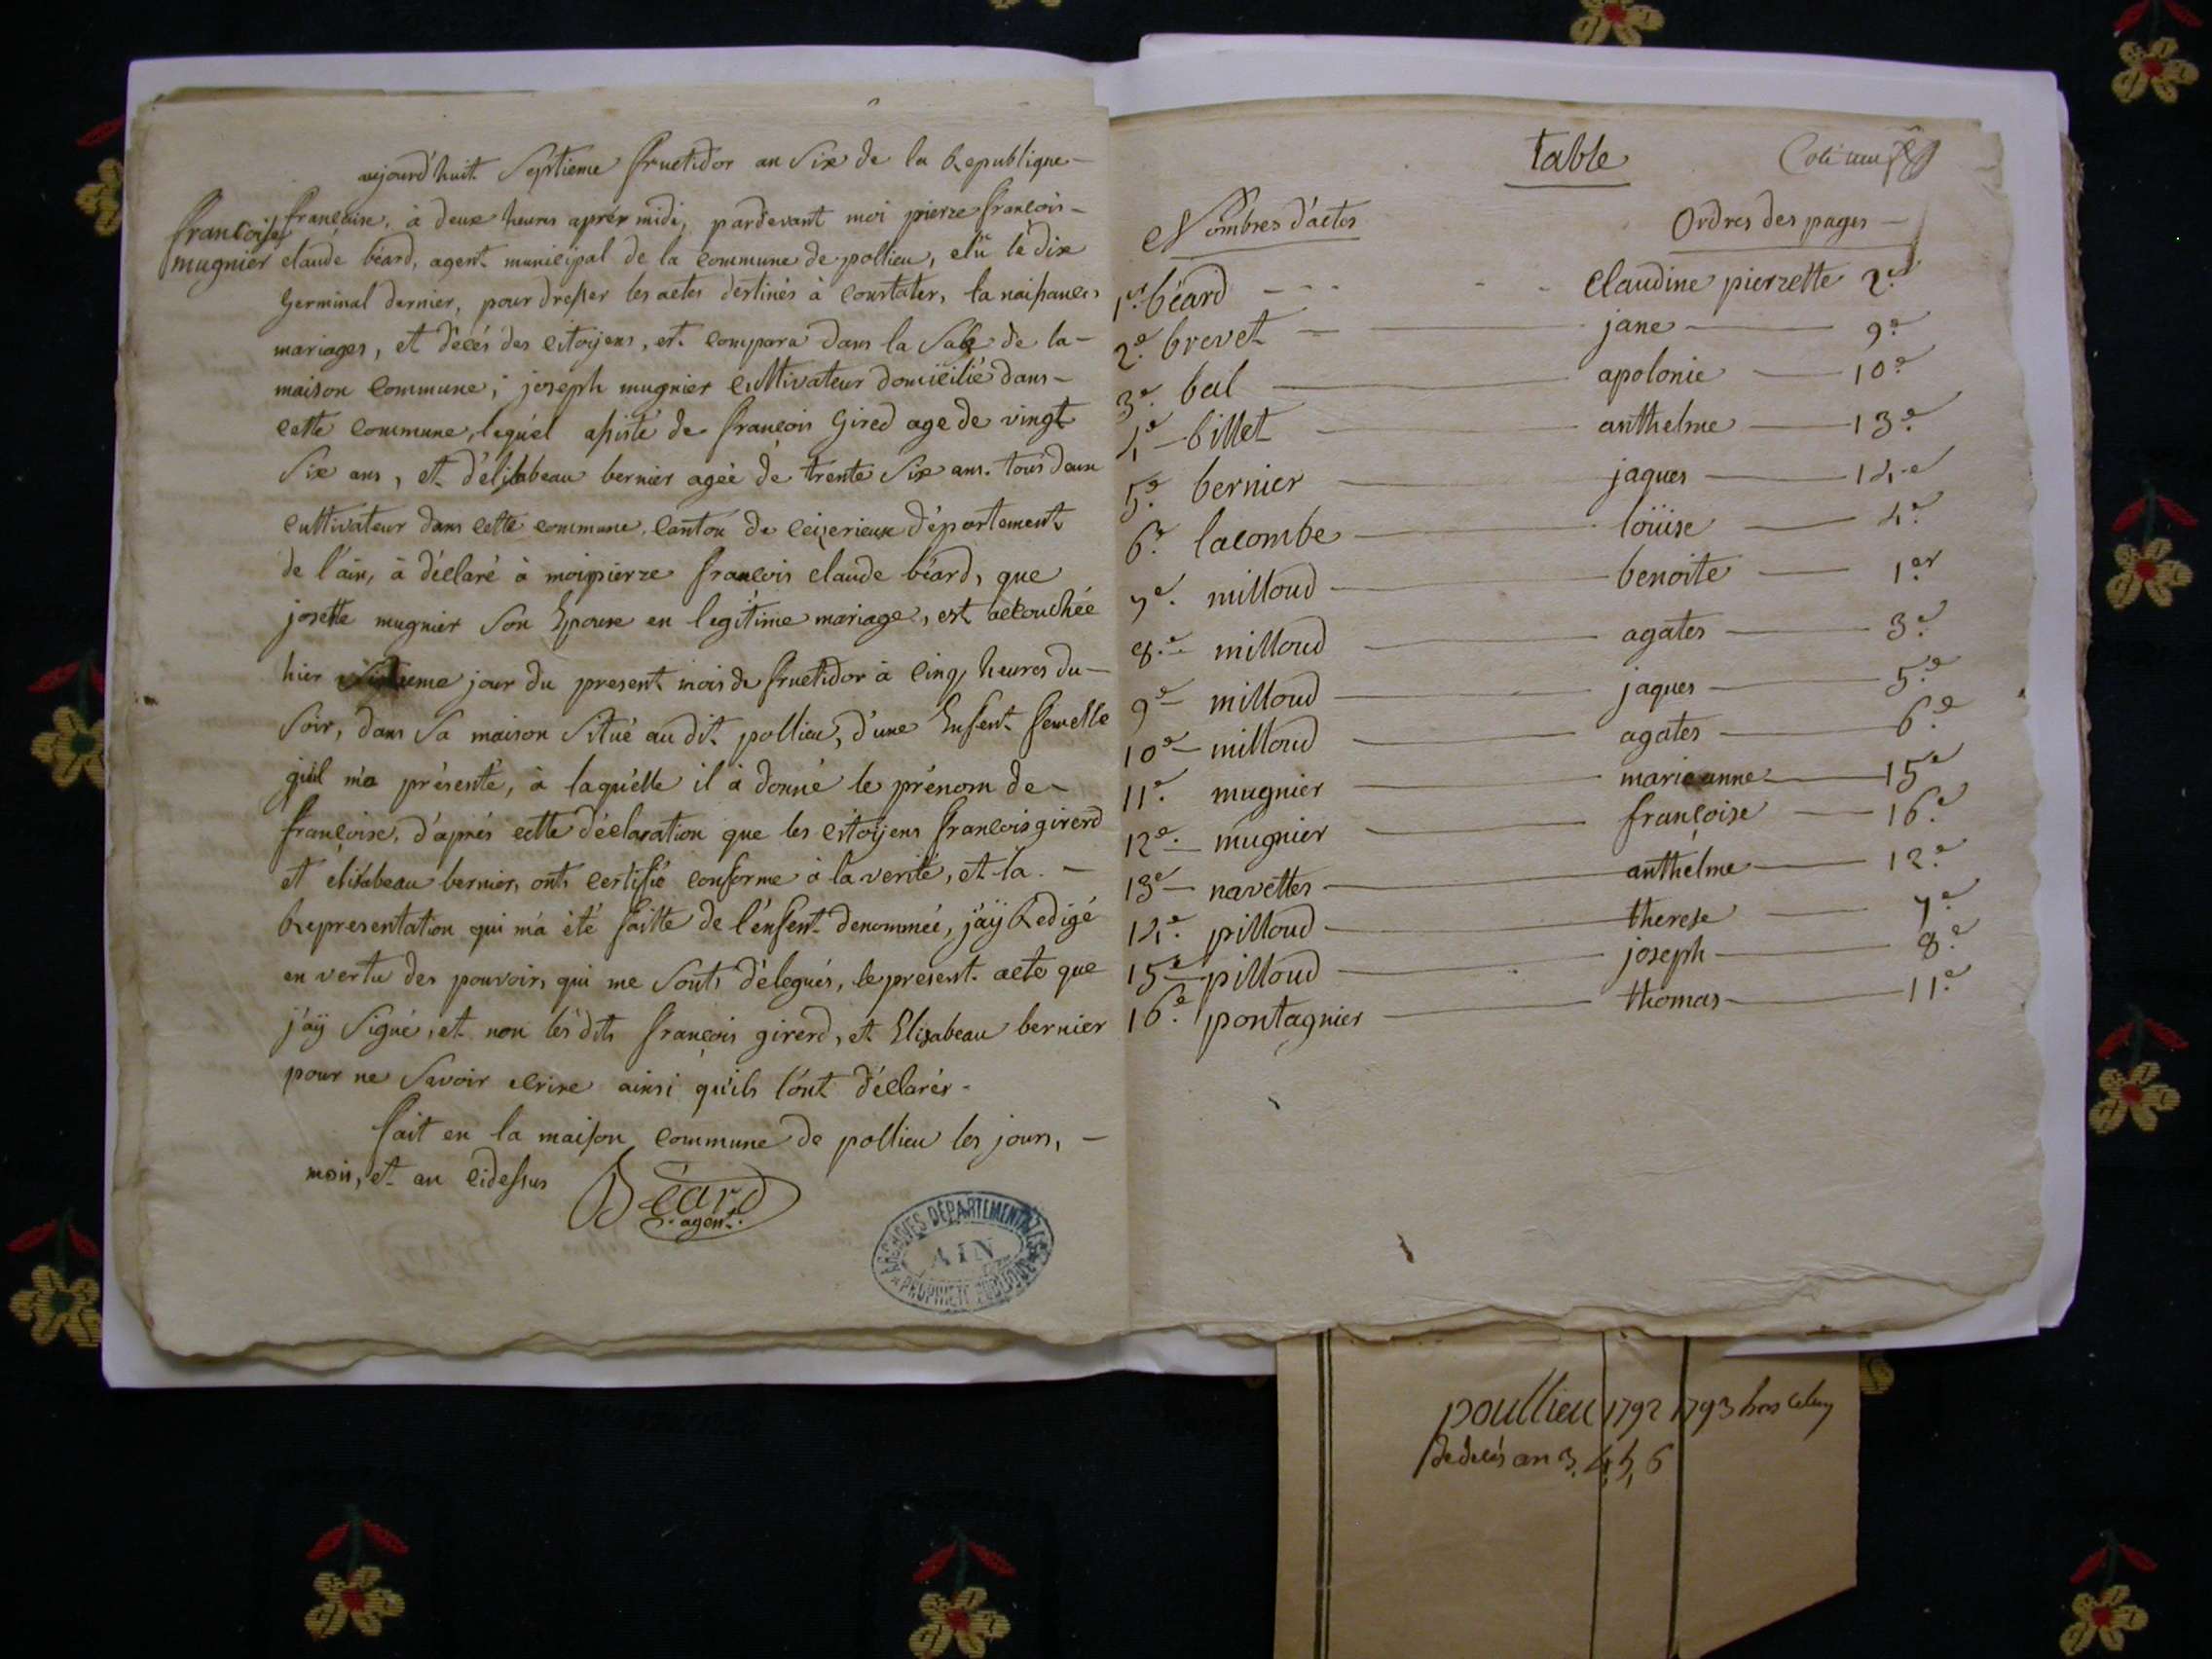 aujourd'huit Septieme fructidor an Six de la Republique
françoise
mugnier
française, à deux heures aprér midi, pardevant moi pierre françois
claude béard, agent municipal de la commune de pollieu, elû le dix
Germinal dernier, pour dresser les actes déstinés à Constater, la naissances
mariages, et décés des citoÿens, est compara dans la Salle de la
maison commune, joseph mugnier cultivateur domicilié dans
cette commune, lequél assisté de françois Gired age de vingt
Six ans, et d'élisabeau bernier agée de trente Six ans. tous deux
cultivateur dans cette commune, canton de ceizerieux département
de l'ain, à déclaré à moi pierre françois claude béard, que
josette mugnier Son Epouse en legitime mariage, est accouchée
hier jour du present mois de fructidor à cinq heures du
Soir, dans Sa maison Situé audit pollieu, d'une Enfent femelle
quil m'a présenté, à laquélle il à donné le prénom de
françoise, d'aprés cette déclaration que les citoÿens françois girerd
et elisabeau bernier, ont certifié conforme à la verité, et la
Representation qui m'a été faitte de l'énfent denommée, j'aÿ Redigé
en vertu des pouvoirs qui me Sonts délegués, le present acte que
j'aÿ Signé, et non lésdits françois girerd, et Elisabeau bernier
pour ne Savoir ecrire ainsi qu'ils l'ont déclarér.
fait en la maison commune de pollieu les jours,
mois, et an cidessus
Béard
agent
ARCHIVES DÉPARTEMENTALES
AIN
PROPRIÉTÉ PUBLIQUE
table
Nombres d'actes Ordres des pages
1er béard claudine pierrette 2e
2e brevet jane 9e
3e bal apolonie 10e
4e billet anthelme 13e
5e bernier jaques 14e
6e lacombe loüise 4e
7e milloud benoite 1er
8e milloud agates 3e
9e milloud jaques 5e
10e milloud agates 6e
11e mugnier marieanne 15e
12e mugnier françoise 16e
13e navettes anthélme 12e
14e pilloud therese 7e
15e pilloud joseph 8e
16e pontagnier thomas 11e
poullieu 1792 1793 hors
de decés an 3, 4, 5, 6